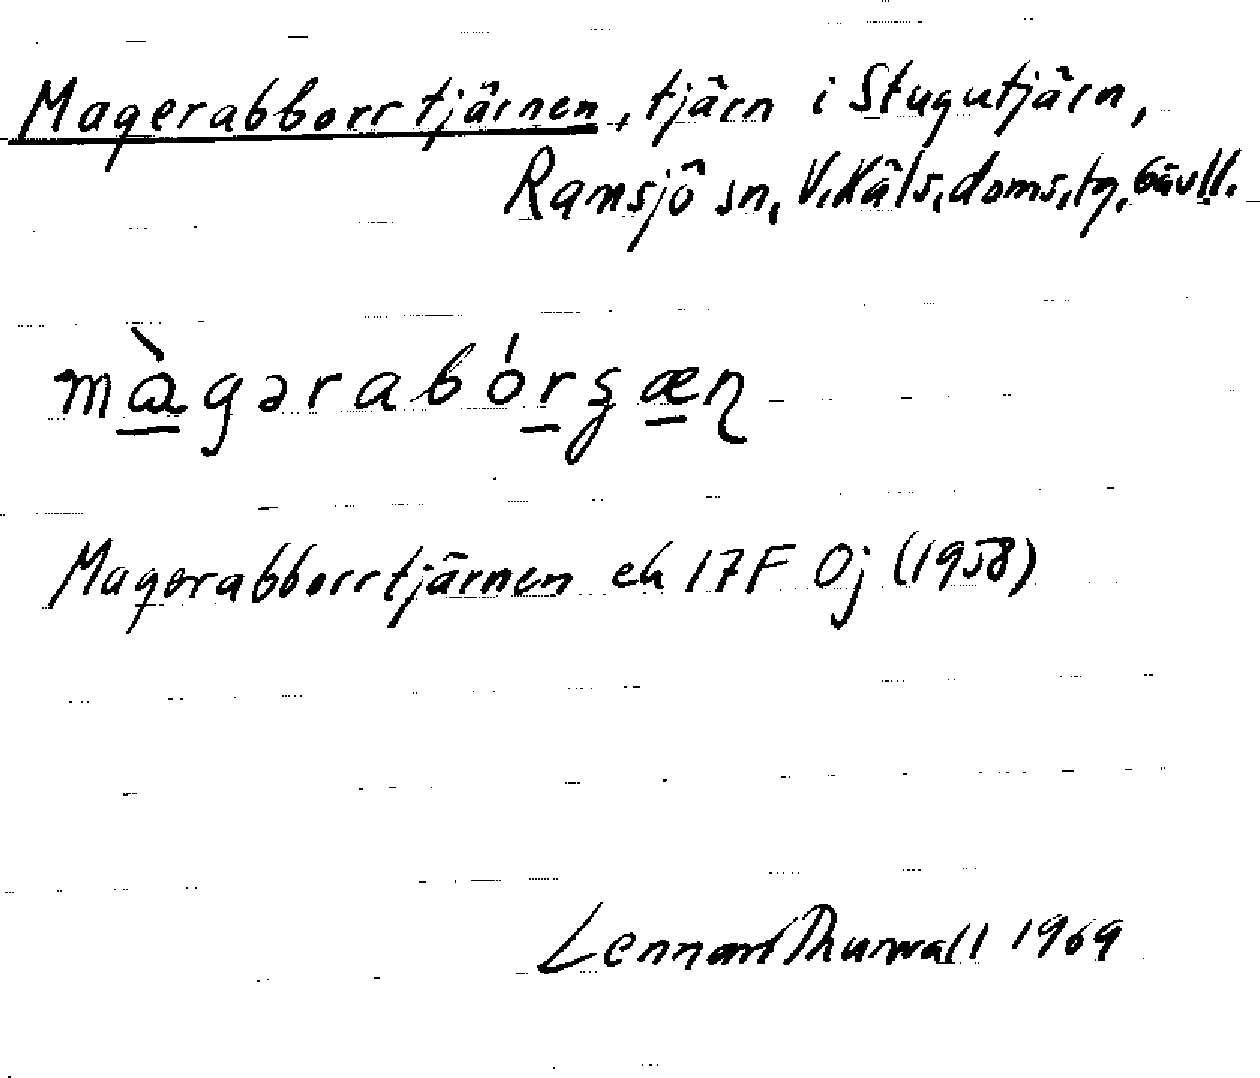 Magerabborrtjärnen, tjärn i Stugutjärn,
Ramsjö sn, V. Häls. doms. tg, Gävll.
màgərabórʂæɳ
Magerabborrtjärnen ek 17F Oj (1958)
Lennart Thurwall 1969